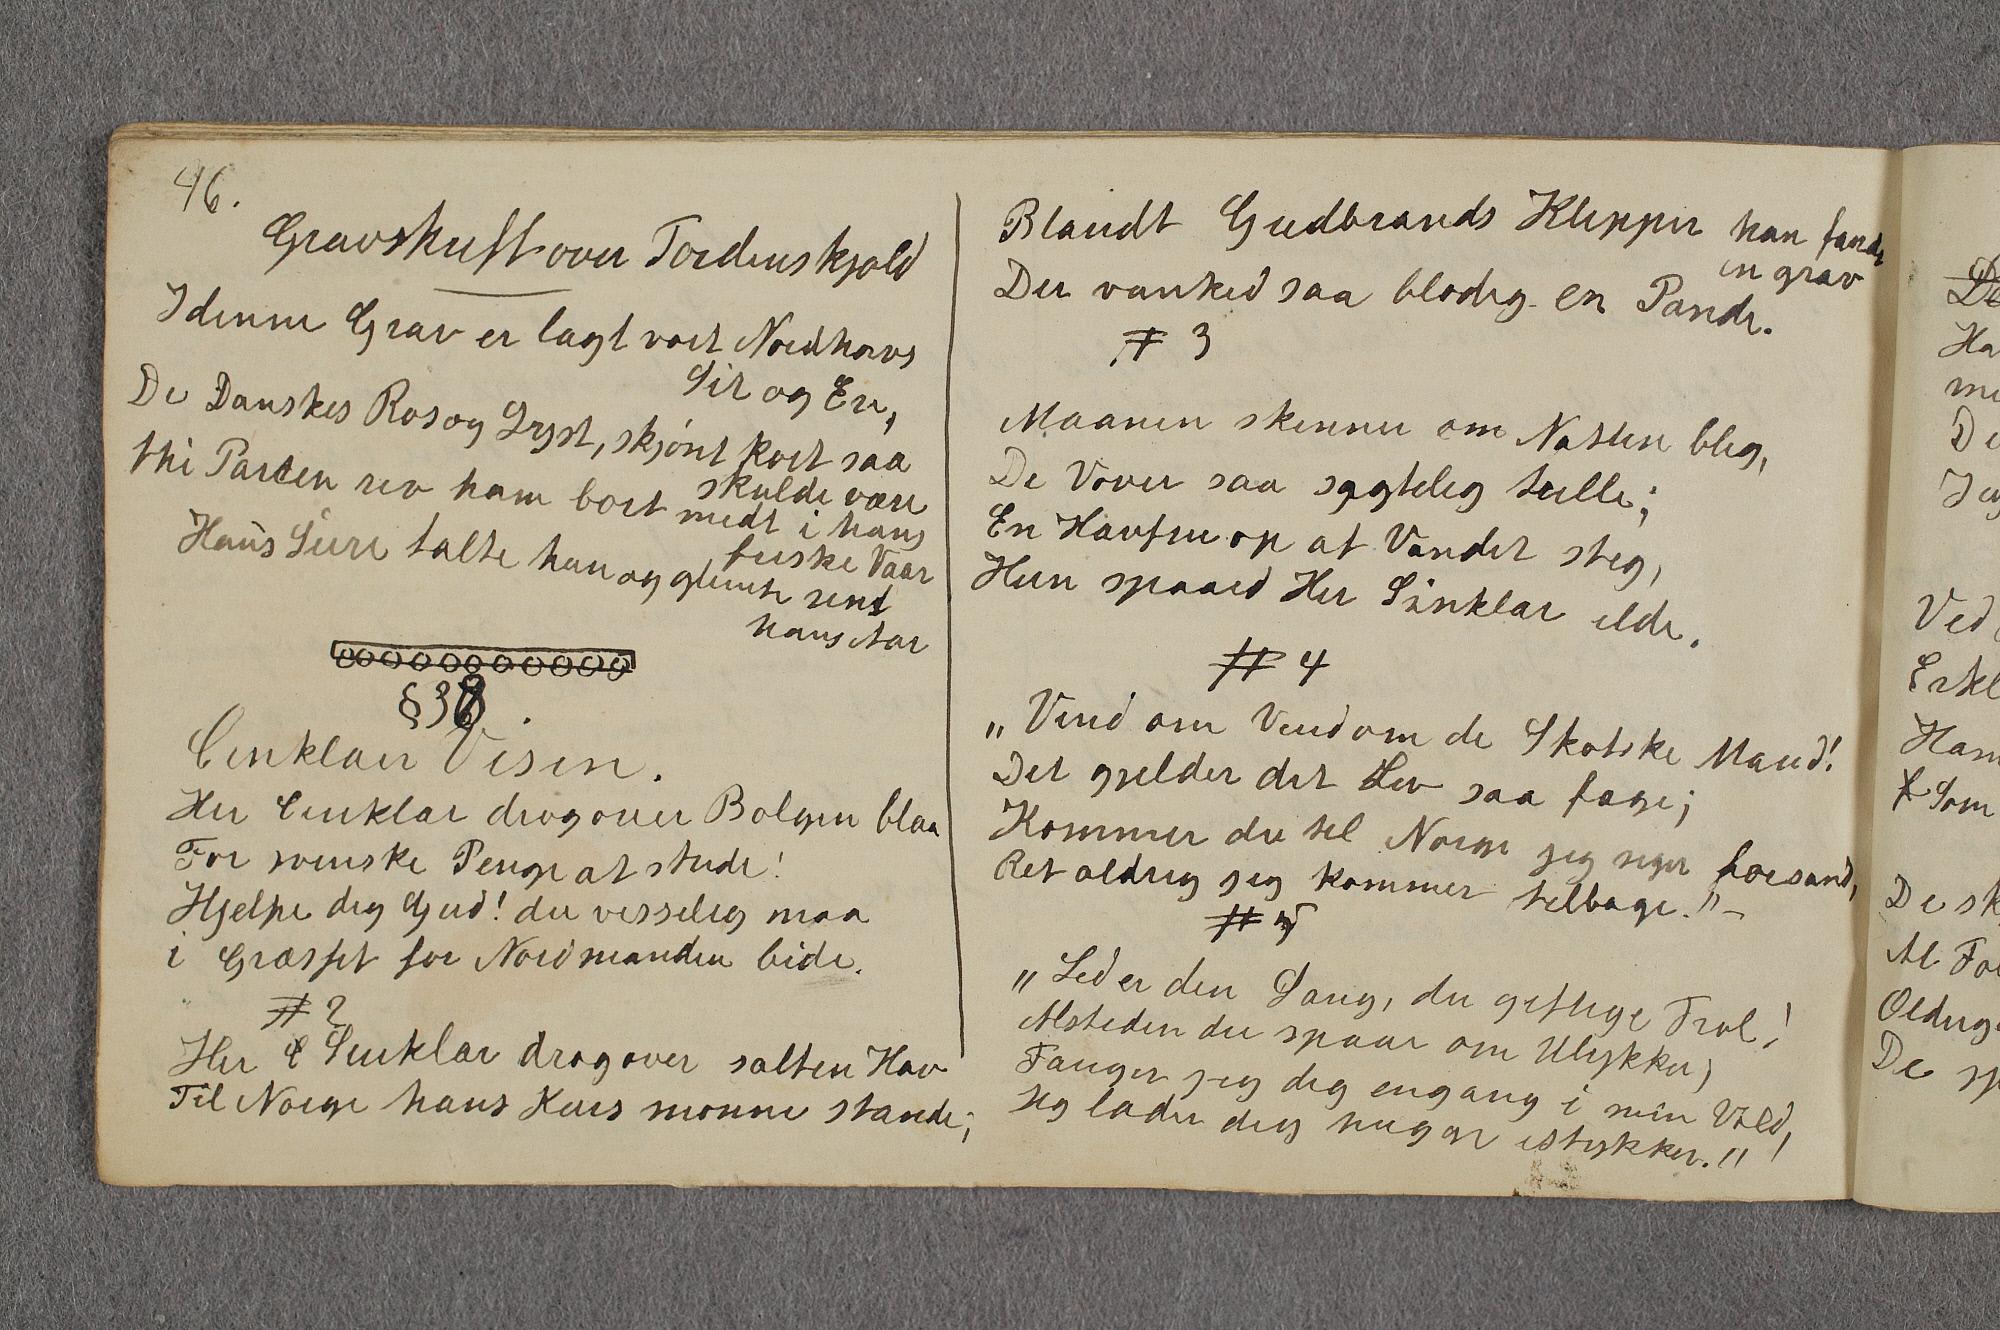 46.
Gravskrift over Tordenskjold
I denne Grav er lagt vort Nordhavs
Sir og Ere,
De Danskes Ros og Lyst, skjönt kort saa
skulde være
thi Parcen rev ham bort midt i hans
friske Vaar
Hans Seire talte hun og glemte rent
hans Aar
§38.
Cinklair Visen.
Her Cinklar drog over Bolgen blaa
For svenske Penge at stride!
Hjelpe dig Gud! du visselig maa
i Græsset for Nordmanden bide.
# 2
Her Sinklar drog over salten Hav
Til Norge hans Kurs monne stande;
Blandt Gudbrands Klipper han fandt
en grav
Der vanked saa blodig en Pande.
# 3
Maanen skinner om Natten bleg,
De Vover saa sagtelig trille;
En Havfru op af Vandet steg,
Hun spaaed Her Sinklar ilde.
# 4
„Vend om Vend om de Skotske Mand!
Det gjelder dit Liv saa fage;
Kommer du til Norge jeg siger forsand,
Ret aldrig jeg kommer tilbage." –
# 5
„Led er den Sang, du giftige Trol!
Alsteden du spaar om Ulykker,
Fanger jeg dig engang i min Vold,
Jeg lader dig hugge istykker."!
De
Ha
De
Ved
Erkl
Ham
Som
De sk
Al For
Oldnge
De sp